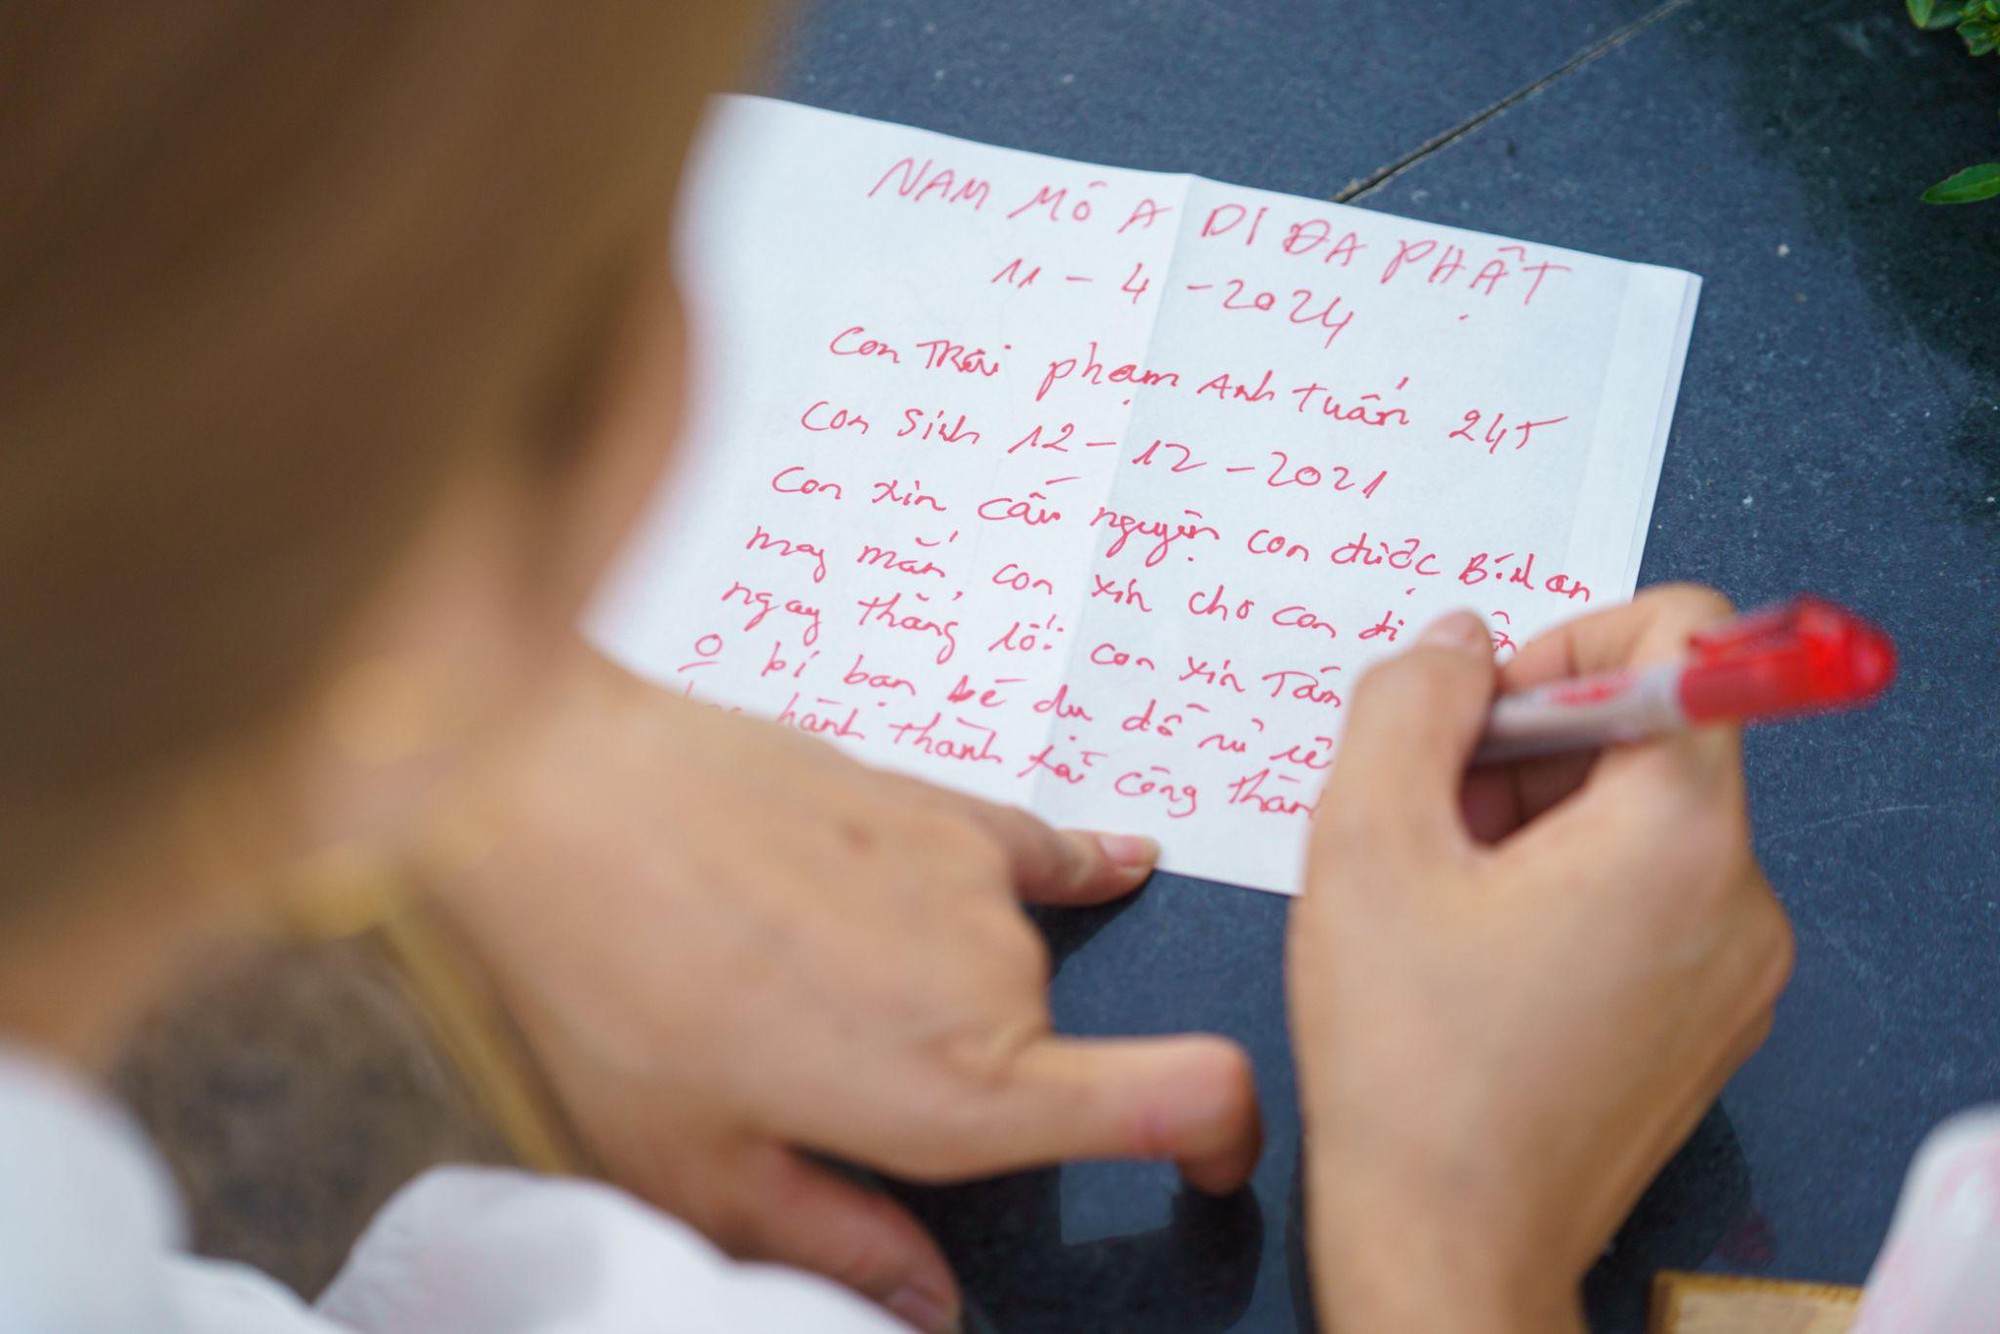 NAM MÔ A DI ĐÀ PHẬT
11 - 4 - 2024
Con Trai phạm Anh tuấn 24T
Con Sinh 12 - 12 - 2021
Con xin cầu nguyện con được Bình an
may mắn, con xin cho con đi
ngay thẳng lối con xin Tấn
o bị bạn bè dụ dỗ rủ rê
hành thành tài công thành